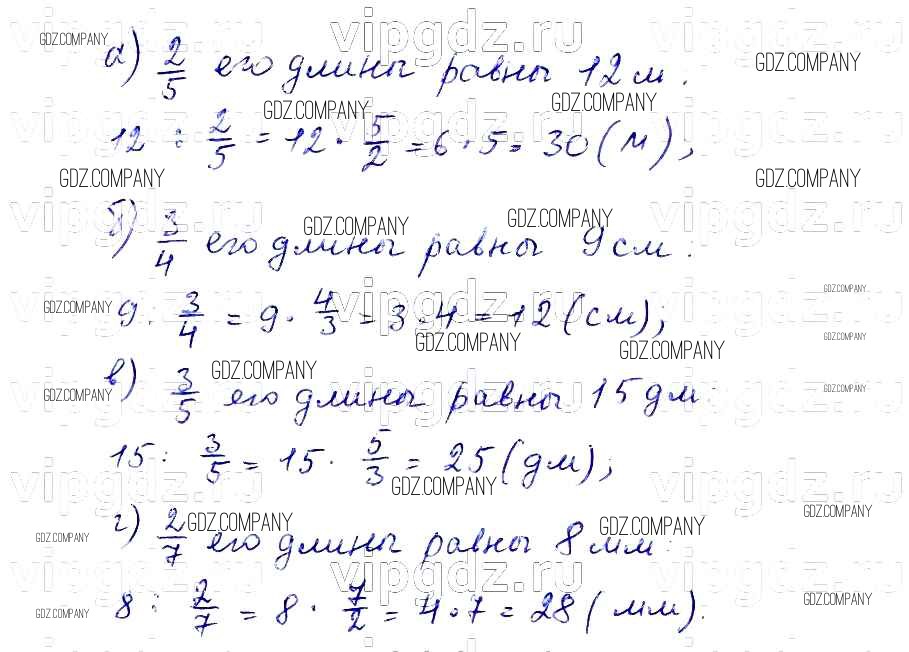 а) 2/5 его длины равны 12 м.
12 : 2/5 = 12 · 5/2 = 6 · 5 = 30 (м);
б) 3/4 его длины равны 9 см:
9 : 3/4 = 9 · 4/3 = 3 · 4 = 12 (см);
в) 3/5 его длины равны 15 дм:
15 : 3/5 = 15 · 5/3 = 25 (дм);
г) 2/7 его длины равны 8 мм:
8 : 2/7 = 8 · 7/2 = 4 · 7 = 28 (мм).
GDZ.COMPANY
vipgdz.ru